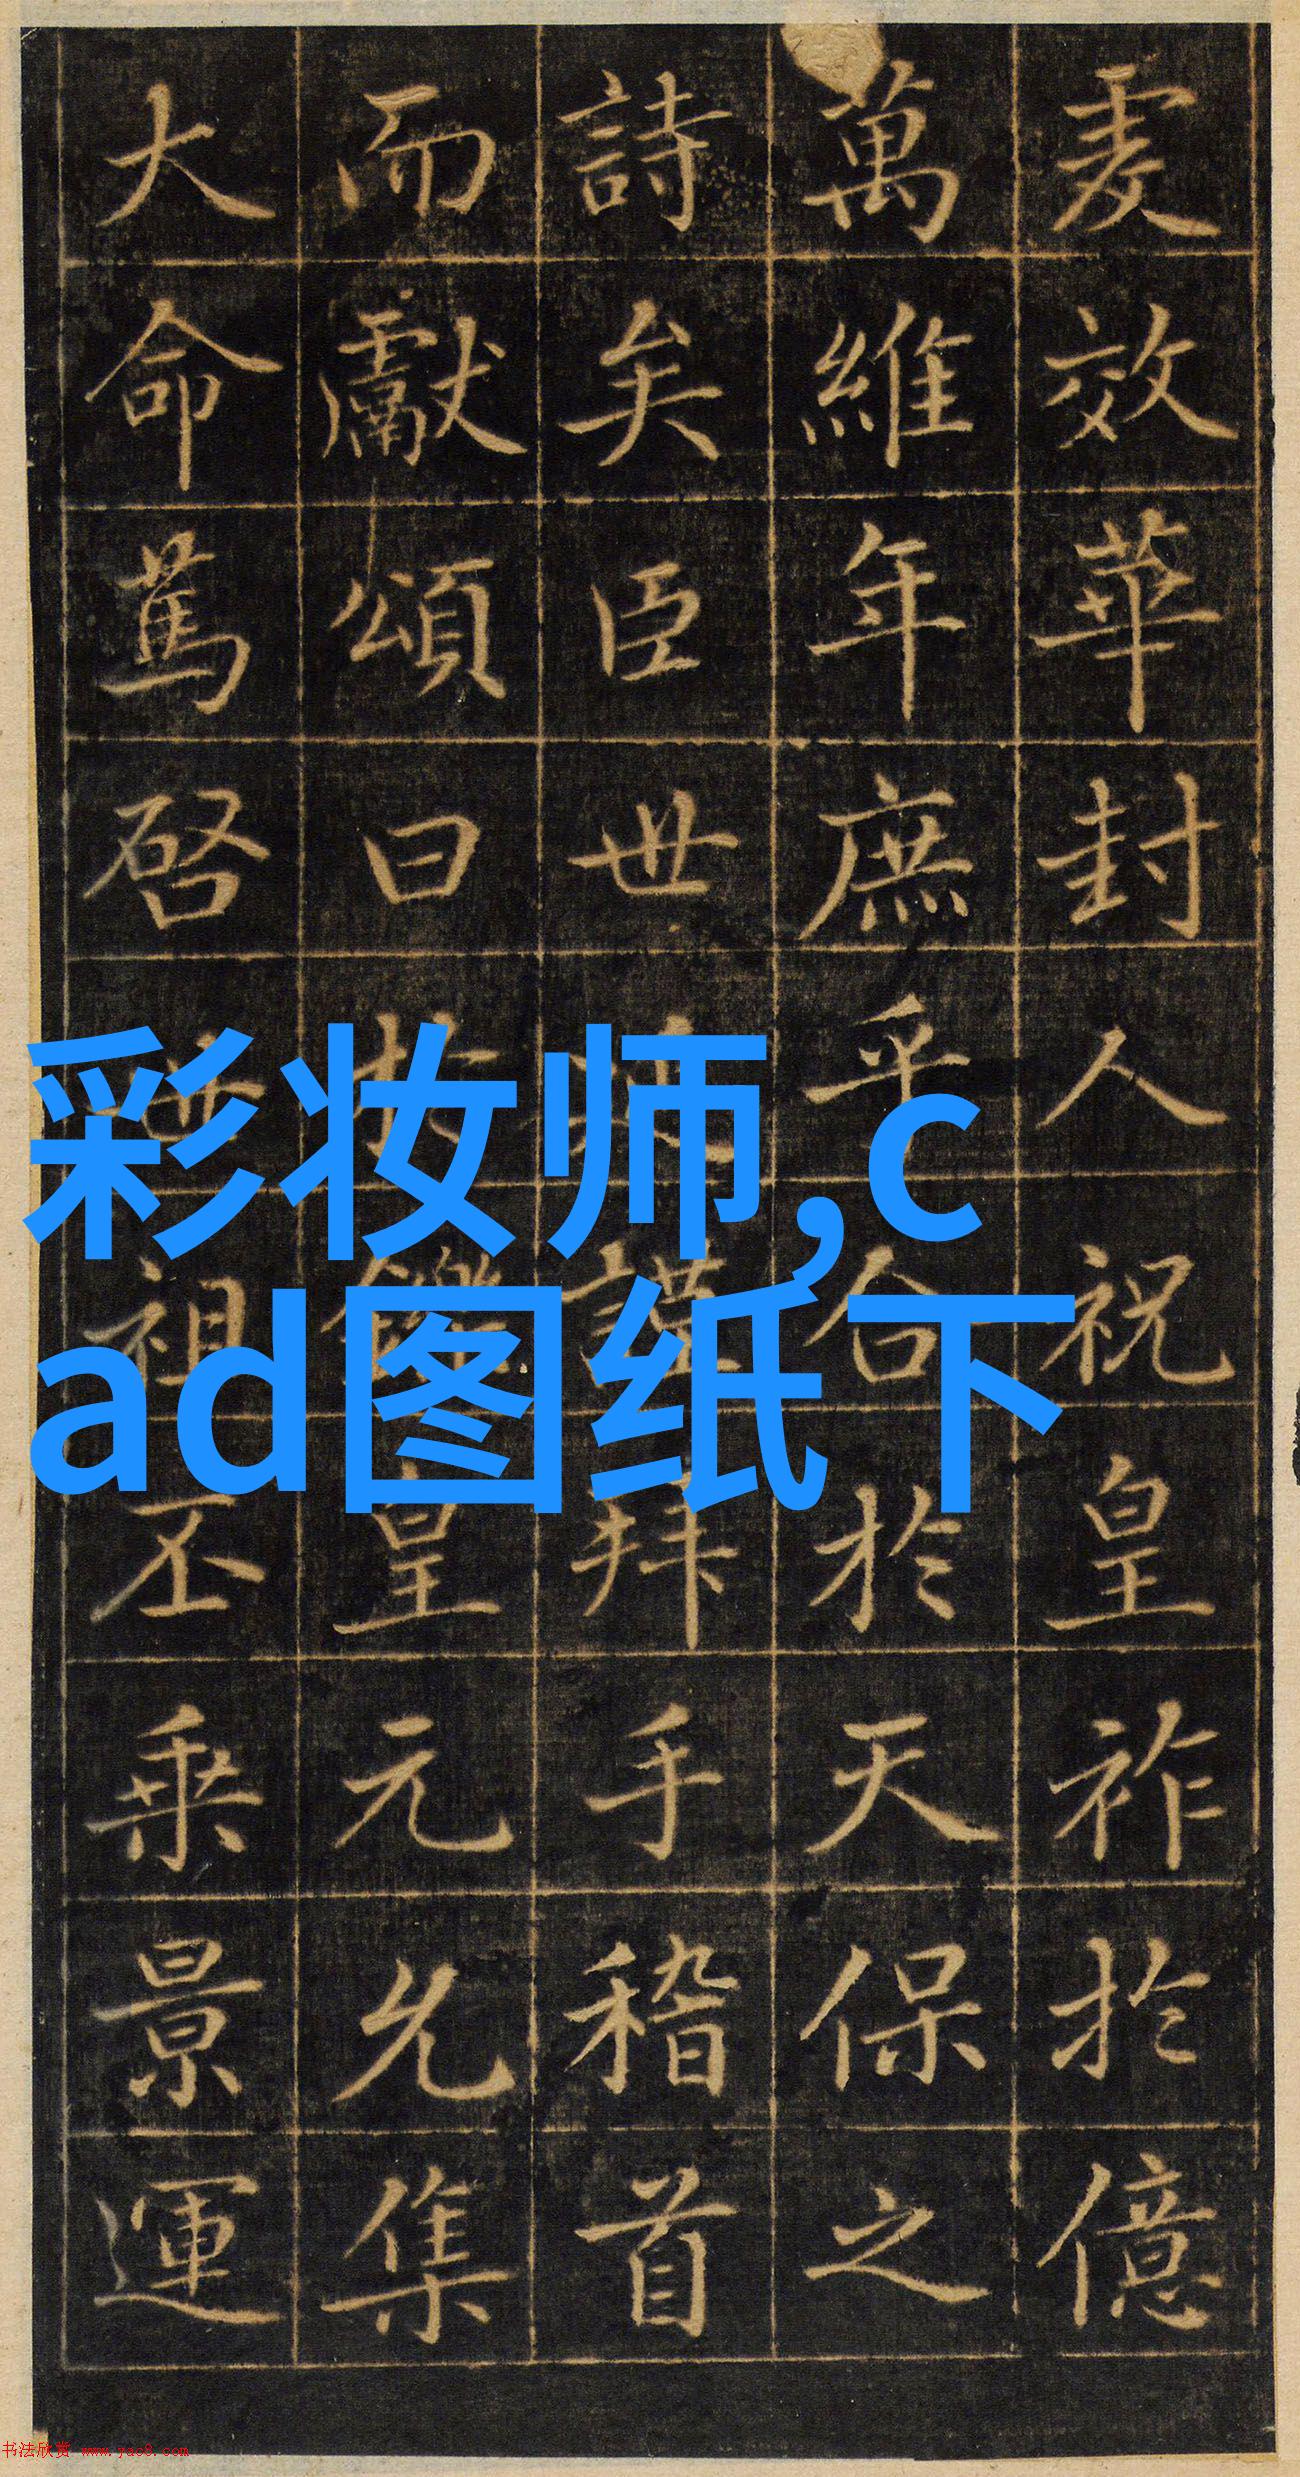 爰效華封人祝皇祚於億
萬維年庶乎合於天保之
詩矣臣世謹拜手稽首
而獻頌曰於鑠皇元允集
大命篤啓世祖丕乘景運
彩妆师,c
ad图纸下
书法欣赏 www.yac8.com